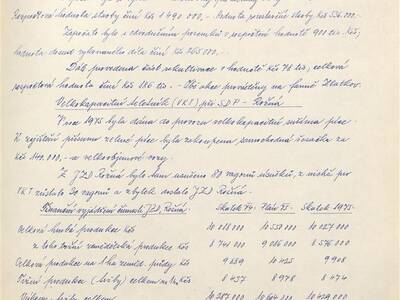 Rozpočtová hodnota stavby činí Kčs 1 490 000,- hodnota prostavěné stavby Kčs 536.000.-
Započato bylo s odvodněním pozemků v rozpočtové hodnotě 900 tis. Kčs,
hodnota dosud vykonaného díla činí Kčs 265 000.-
Dále provedena část rekultivace v hodnotě Kčs 78 tis, celková
rozpočtová hodnota činí Kčs 186 tis. - Obě akce prováděny na farmě Zlatkov.
Velkokapacitní (VKT) při SDP - Rožná
V roce 1975 byla dána do provozu velkokapacitní sušárna píce.
K zajištění přísunu zelené píce byla zakoupena samohodná řezačka za
Kčs 140.000,- a velkoobjemové vozy.
Z JZD Rožná bylo tam usušeno 80 vagonů úsušků, z nichž pro
VKT zůstalo 30 vagonů a zbytek dostalo JZD Rožná.
Finanční vyjádření JZD Rožná: Skutek 74. Plán 75. Skutek 1975.
Celková hrubá produkce Kčs 10 018 000 10 553 000 10 027 000
z toho hrubá zemědělská produkce Kčs 8 741 000 9 086 000 8 576 000
Celková produkce na 1 ha zeměd. půdy Kčs 9 689 10 425 9 908
Tržní produkce (tržby) celkem na 1 ha Kčs 8 457 8 978 8 474
celkem 10 287 000 10 604 000 10 429 000